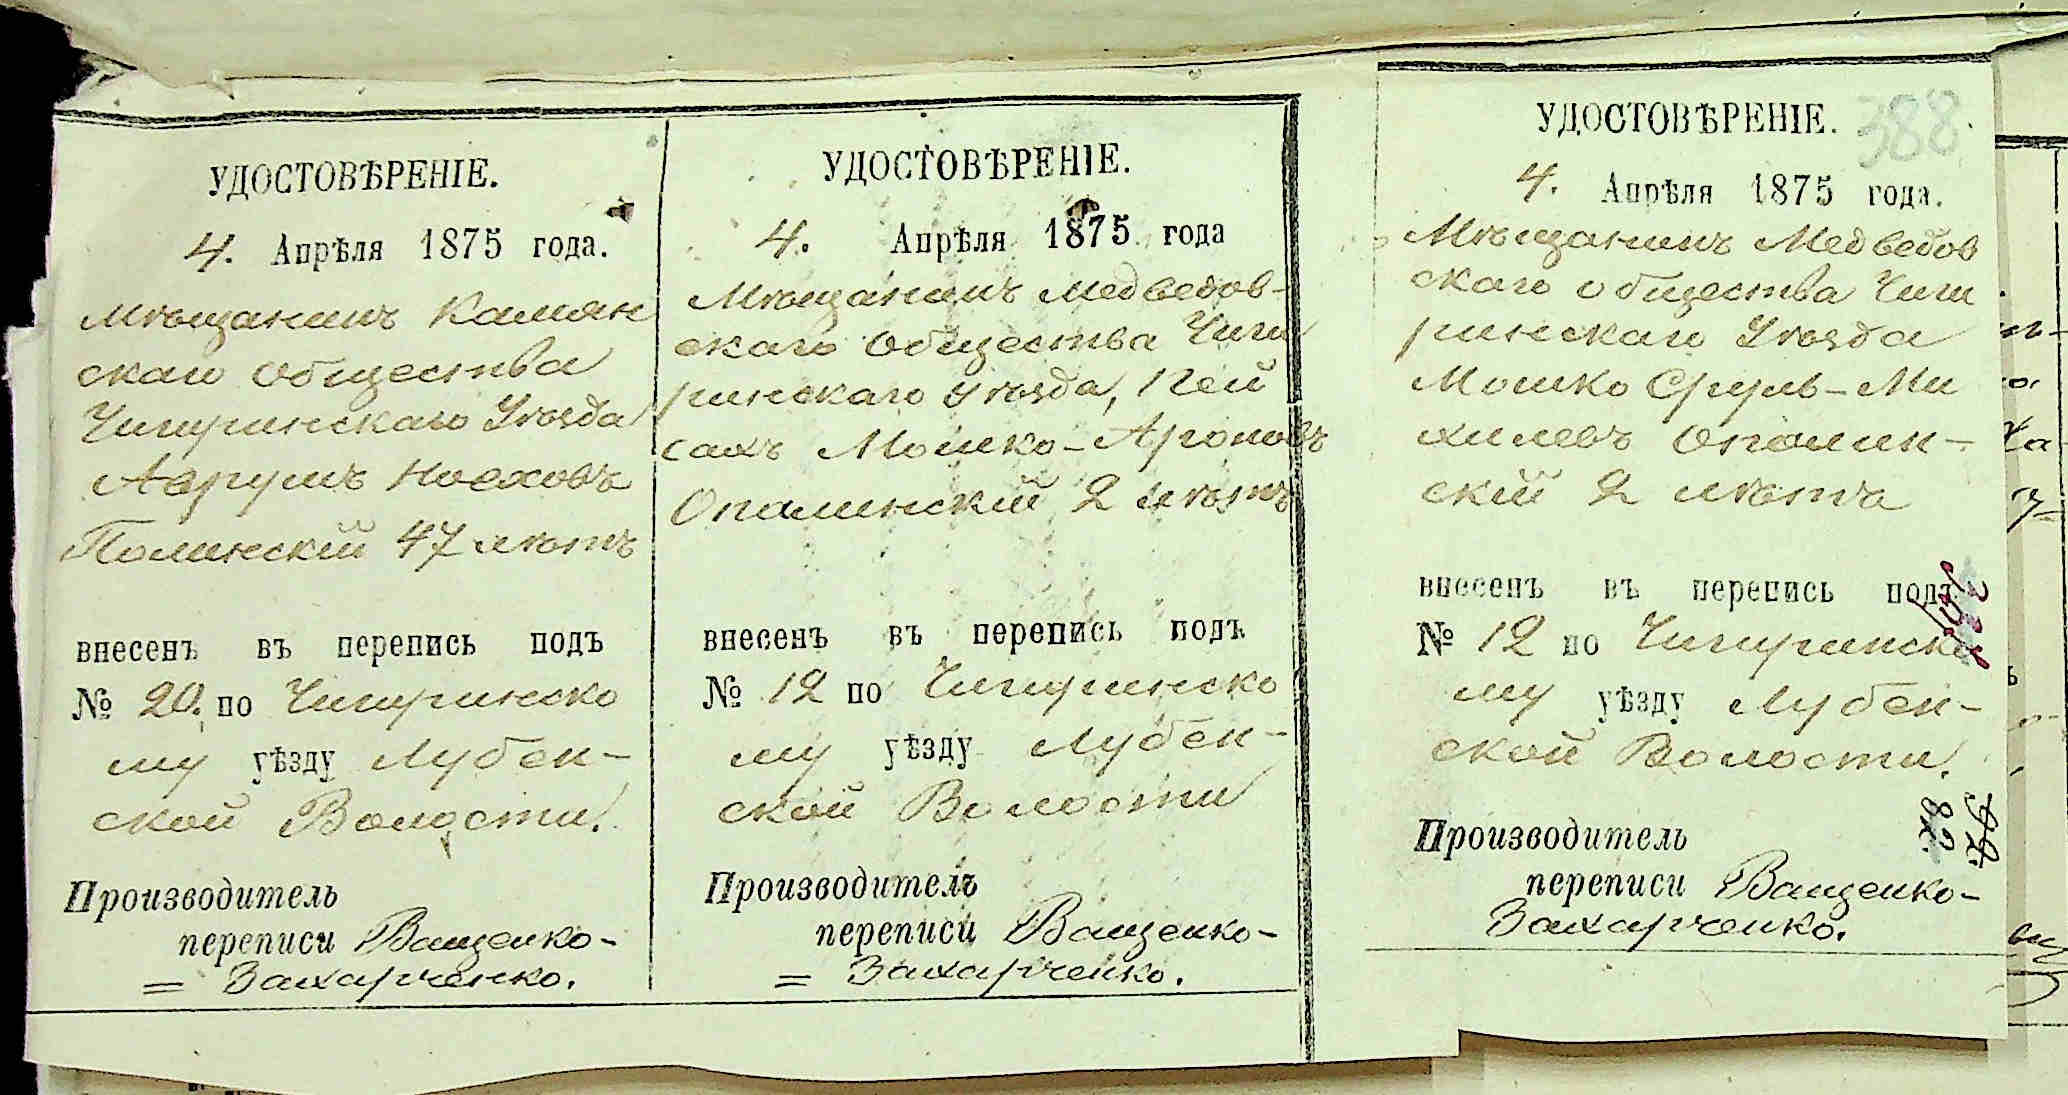 УДОСТОВѢРЕНІЕ.
4. Апрѣля 1875 года.
Мѣщанинъ Камян
скаго Общества
Чигиринскаго Уѣзда
Аврумъ Ноеховъ
Полинскій 47 лѣтъ
внесенъ въ перепись подъ
№ 20. по Чигиринско
му уѣзду Лубен-
ской Волости.
Производитель
переписи Ващенко-
= Захарченко.
УДОСТОВѢРЕНІЕ.
4. Апрѣля 1875 года
Мѣщанинъ Медведов-
скаго Общества Чиги
ринскаго Уѣзда, Пей
сахъ Мошко-Ароновъ
Опалинскій 2 лѣтъ
внесенъ въ перепись подъ
№ 12 по Чигиринско
му уѣзду Лубен-
ской Волости
Производитель
переписи Ващенко-
= Захарченко.
388
УДОСТОВѢРЕНІЕ.
4. Апрѣля 1875 года.
Мѣщанинъ Медведов
скаго общества Чиги
ринскаго Уѣзда
Мошко Сруль-Ми
хилевъ Опалин-
скій 2 лѣта
внесенъ въ перепись подъ
№ 12 по Чигиринско
му уѣзду Лубен-
ской Волости.
82.
Производитель
переписи Ващенко-
Захарченко.